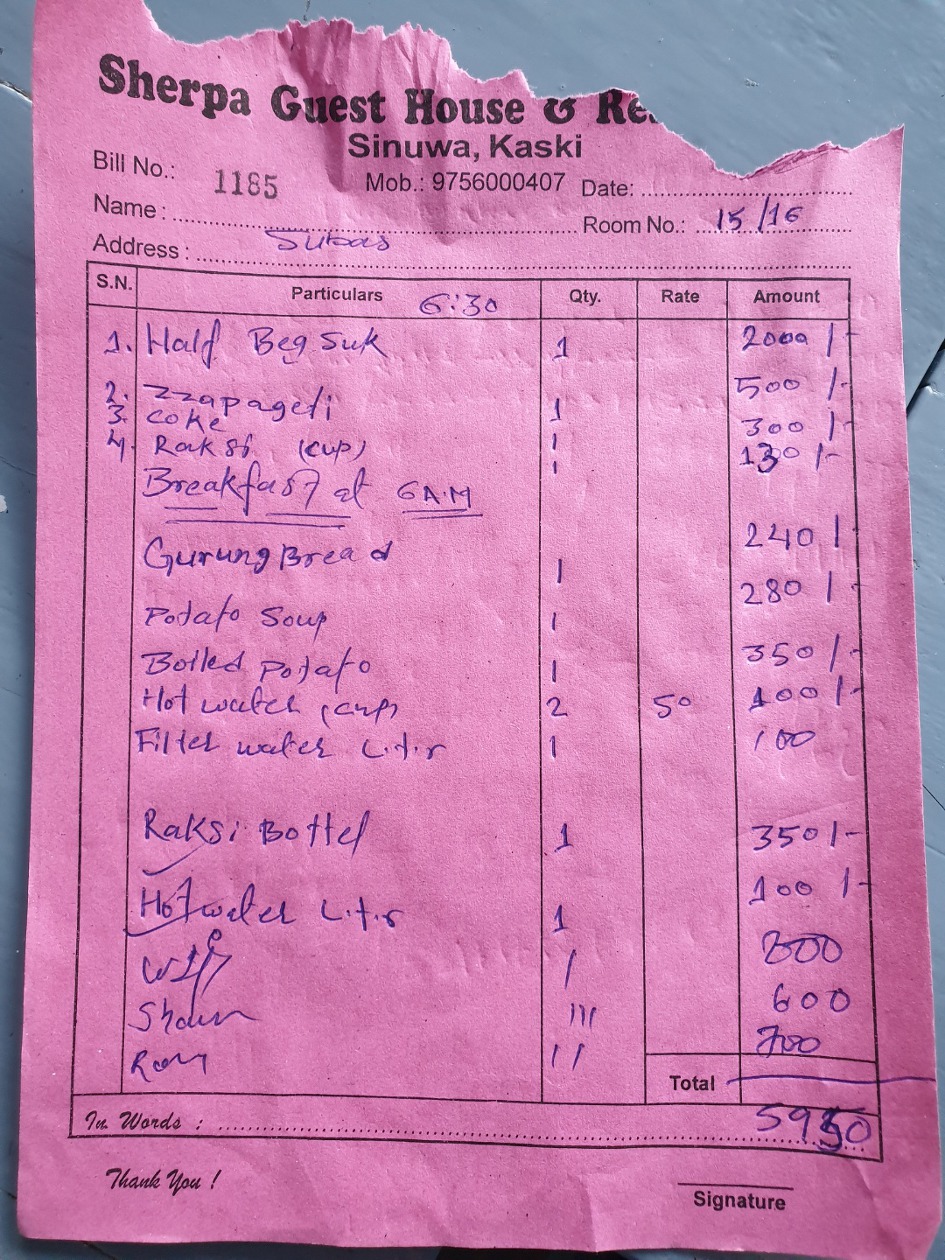 Sherpa Guest House & Re
Sinuwa, Kaski
Bill No.: 1185 Mob.: 9756000407 Date:
Name: Room No.: 15/16
Address: Subas
S.N. Particulars 6:30 Qty. Rate Amount
1. Half Beg Suk 1 2000/-
2. Zzapageti 1 500/-
3. Coke 1 300/-
4. Raksi (cup) 1 130/-
Breakfast at 6 A.M
Gurung Bread 1 240/-
Potato Soup 1 280/-
Boiled potato 1 350/-
Hot water (cup) 2 50 100/-
Filter water Litir 1 100
Raksi Bottel 1 350/-
Hot water Litir 1 100/-
Wifi 1 200
Shower III 600
Room II 700
Total
In Words: 5950
Thank You!
Signature